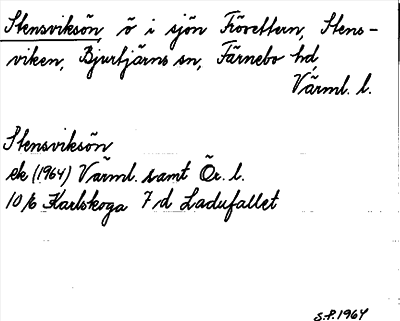 Stensviksön, ö i sjön Frövettern, Stens-
viken, Bjurtjärns sn, Färnebo hd,
Värml. l.
Stensviksön
ek (1964) Värml. samt Ör. l.
10 b Karlskoga 7 d Ladufallet
S.P. 1964